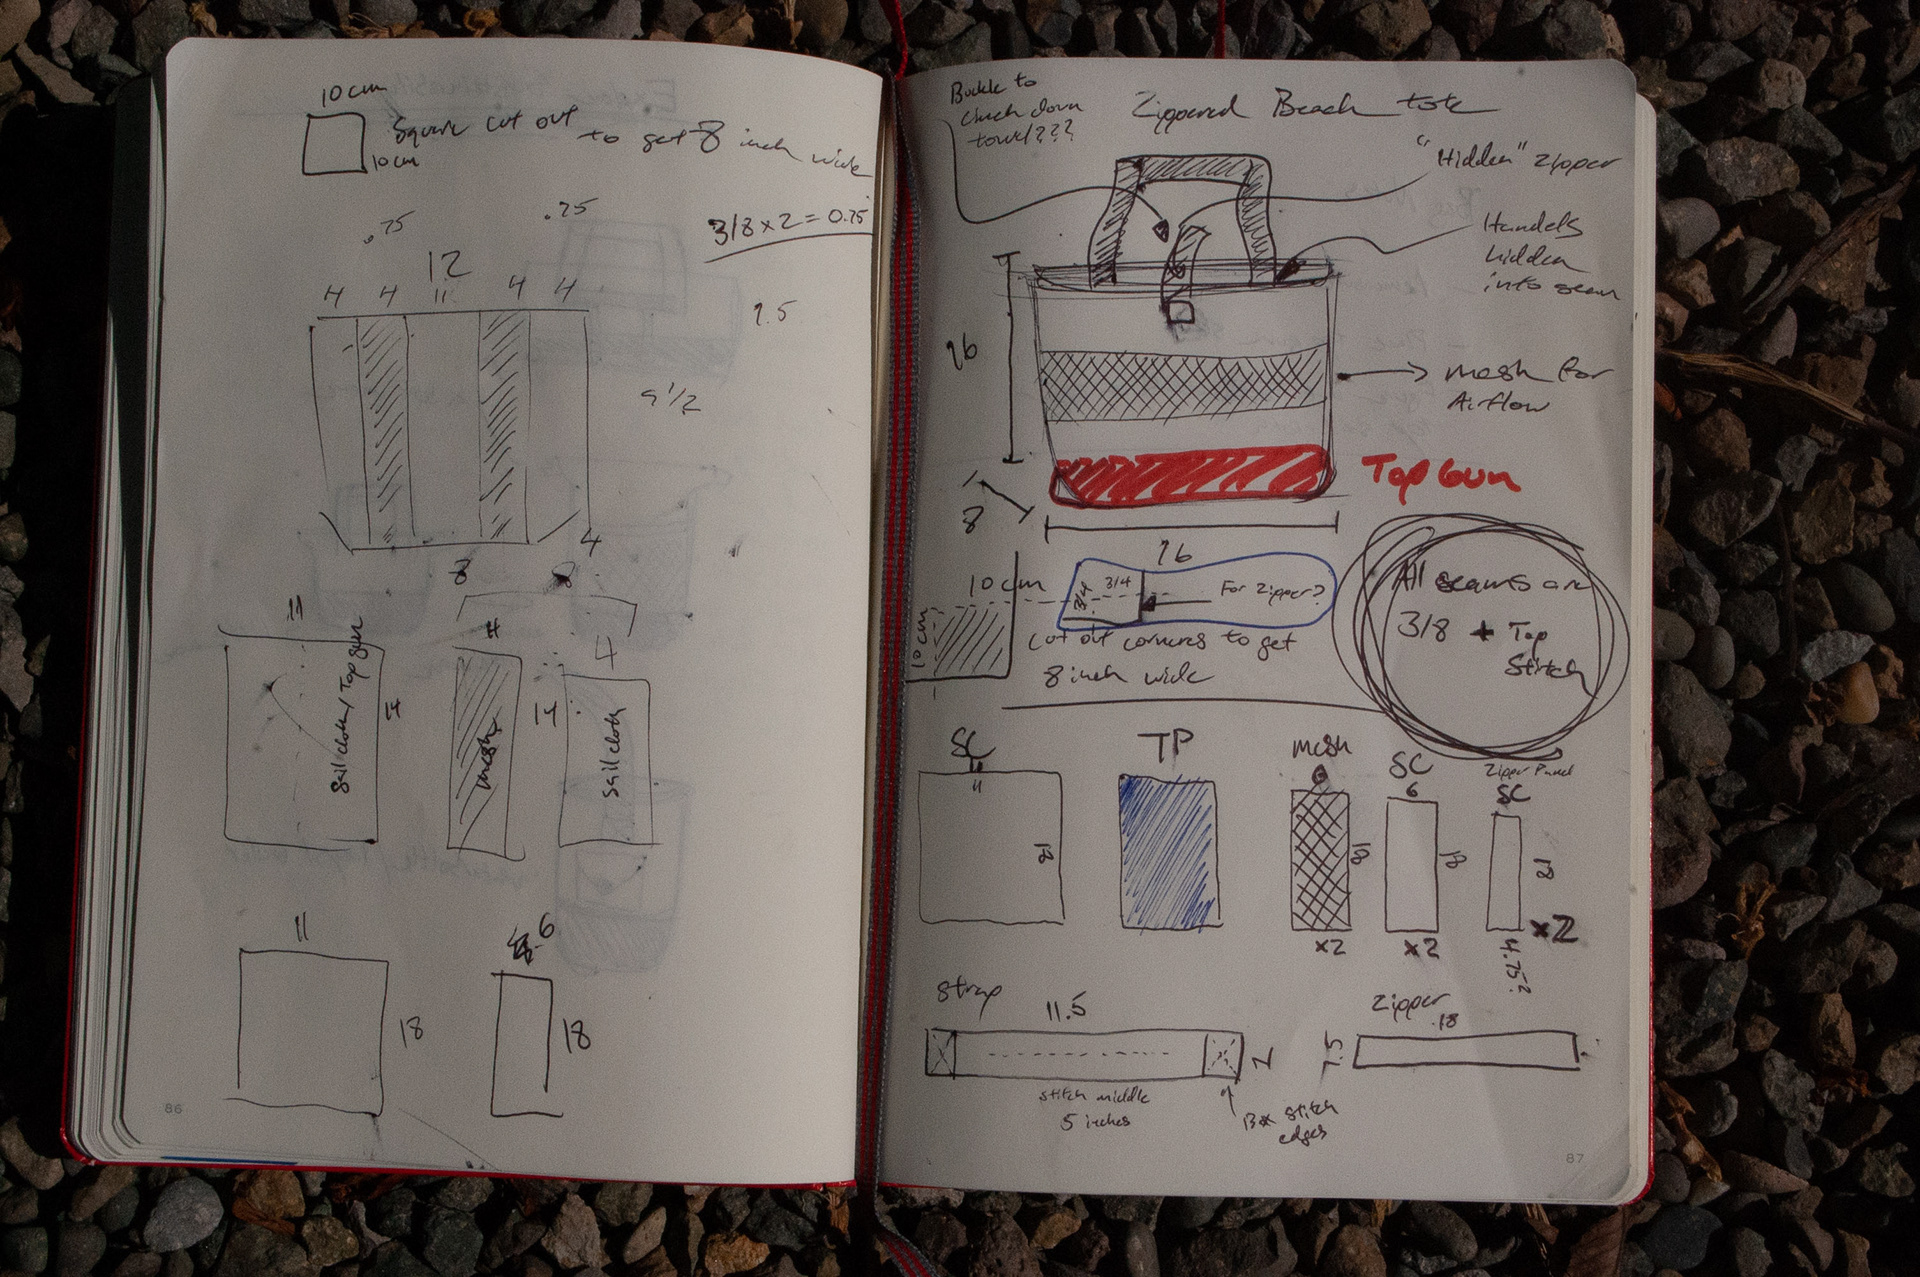 10 cm
10 cm
Square cut out
to get 8 inch wide
3/8 x 2 = 0.75
.75
.75
12
4 4 11 4 4
9.5
9 1/2
4
8
8
11
Sail cloth / Top gun
14
4
mesh
14
4
Sail cloth
11
18
6
18
86
Buckle to
cinch down
towel???
Zippered Beach tote
"Hidden" Zipper
Handels
hidden
into seam
16
mesh for
Airflow
Top Gun
8
16
10 cm
10 cm
3/4
3/4
For Zipper?
Cut out corners to get
8 inch wide
All seams are
3/8 + Top
Stitch
SC
11
18
TP
mesh
18
x2
SC
6
18
x2
Zipper Panel
SC
18
x2
4.75?
Strap
11.5
2
stitch middle
5 inches
Box stitch
edges
Zipper
18
1.5
87